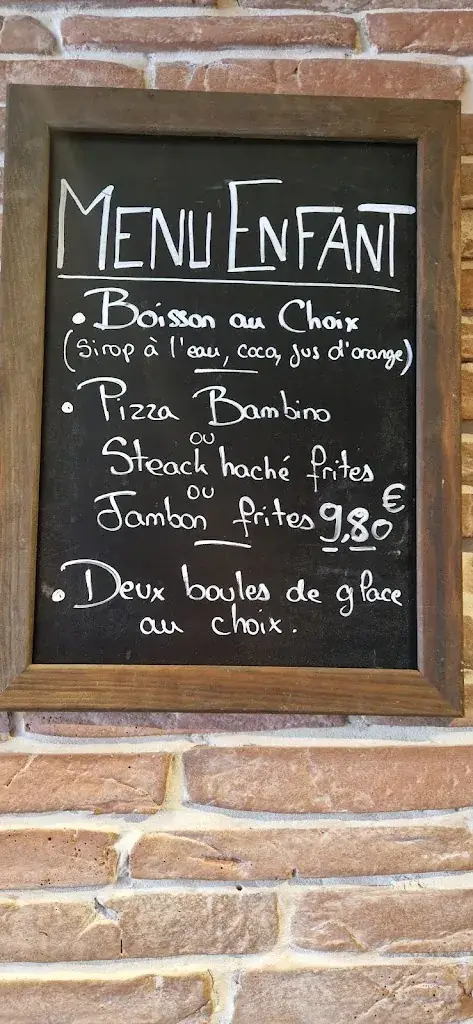 MENU ENFANT
• Boisson au Choix
(Sirop à l'eau, coca, jus d'orange)
• Pizza Bambino
ou
Steack haché frites
ou
Jambon frites 9,80€
• Deux boules de glace
au choix.